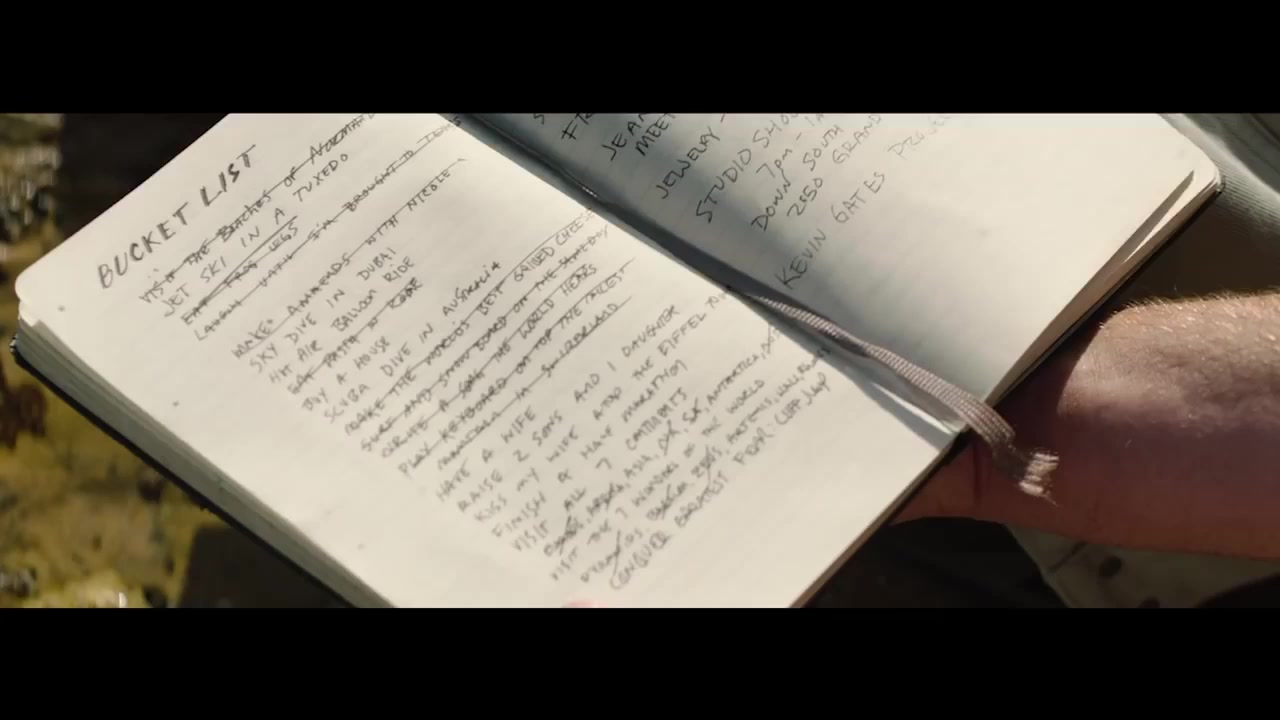 BUCKET LIST
VISIT THE BEACHES OF NORMAND
JET SKI IN A TUXEDO
EAT FROG LEGS
LAUGH UNTIL I'M BROUGHT TO TEARS
MAKE AMENDS WITH NICOLE
SKY DIVE IN DUBAI
HOT AIR BALLOON RIDE
EAT PASTA IN ROME
BUY A HOUSE
SCUBA DIVE IN AUSTRALIA
MAKE THE WORLDS BEST GRILLED CHEESE
SURF AND SNOWBOARD ON THE SAME DAY
WRITE A SONG THE WORLD HEARS
PLAY KEYBOARD ATOP THE TALLEST
MOUNTAIN IN SWITZERLAND
HAVE A WIFE
RAISE 2 SONS AND 1 DAUGHTER
KISS MY WIFE ATOP THE EIFFEL TOW
FINISH A HALF MARATHON
VISIT ALL 7 CONTINENTS
AFRICA, ASIA, ANTARCTICA,
VISIT THE 7 WONDERS OF THE WORLD
CONQUER GREATEST FEAR: CLIFF JUMP
S
FR
JEAN
MEET
JEWELRY -
STUDIO SHO
7PM - 1A
DOWN SOUTH
2350 GRAND
KEVIN GATES PROJEC